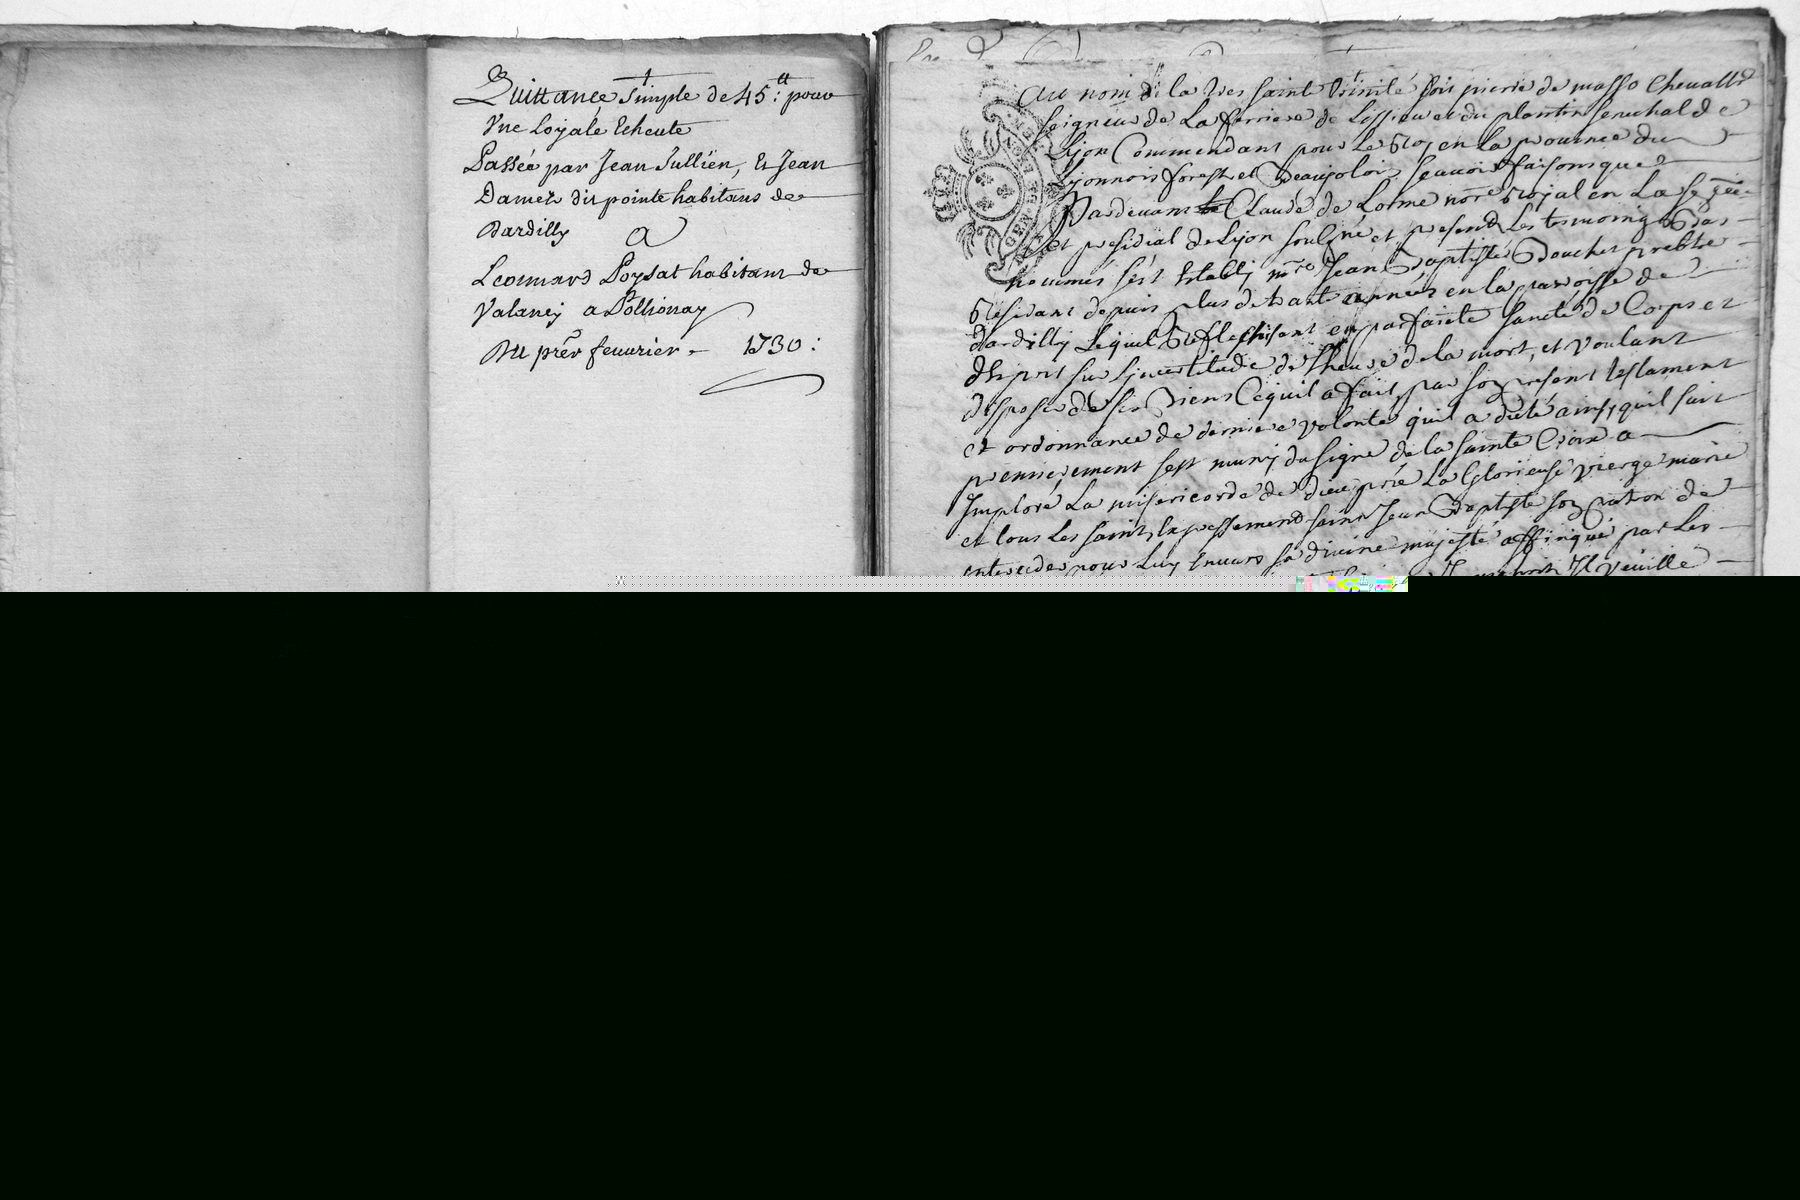 Quittance simple de 45 ₶: pour
Vne loyale Echeute
Passée par Jean Jullien, Et Jean
Damet dit pointe habitans de
Dardilly
A
Leonnard Poysat habitant de
Valancy a Pollionay
Du p.er feuurier - 1730:
Au nom de la tres sainte trinité soit pierre de masso cheuallr
seigneur de La ferriere de Lissieu et du plantin senechal de
Lyon Commendant pour Le Roy en la prouince du
Lyonnois forest et Beaujolois scauoir faisons que
Pardeuant Claude de Lorme nore Royal en La se
et presidial de Lyon soussiné et presend Les tesmoings Bas
nommés sest Establi mre Jean Baptiste Bouchet prebtre
Residant depuis plus de trante années en la parroisse de
dardilly Lequel Reflechisant en parfaiete sancté de Corps et
desprit sur Lincertitude de Lheure de la mort, et voulant
disposer de ses Biens Cequil a fait par son present testament
et ordonnance de derniere volonté quil a dicté ainsy quil suit
premierement sest muny du signe de la sainte Croix a
Imploré La misericorde de dieu prié La Glorieuse vierge marie
et tous Les saints Expressement saint Jean Baptiste son patron de
interceder pour Luy Enuers sa divine majesté affinque par Les
Il veuille